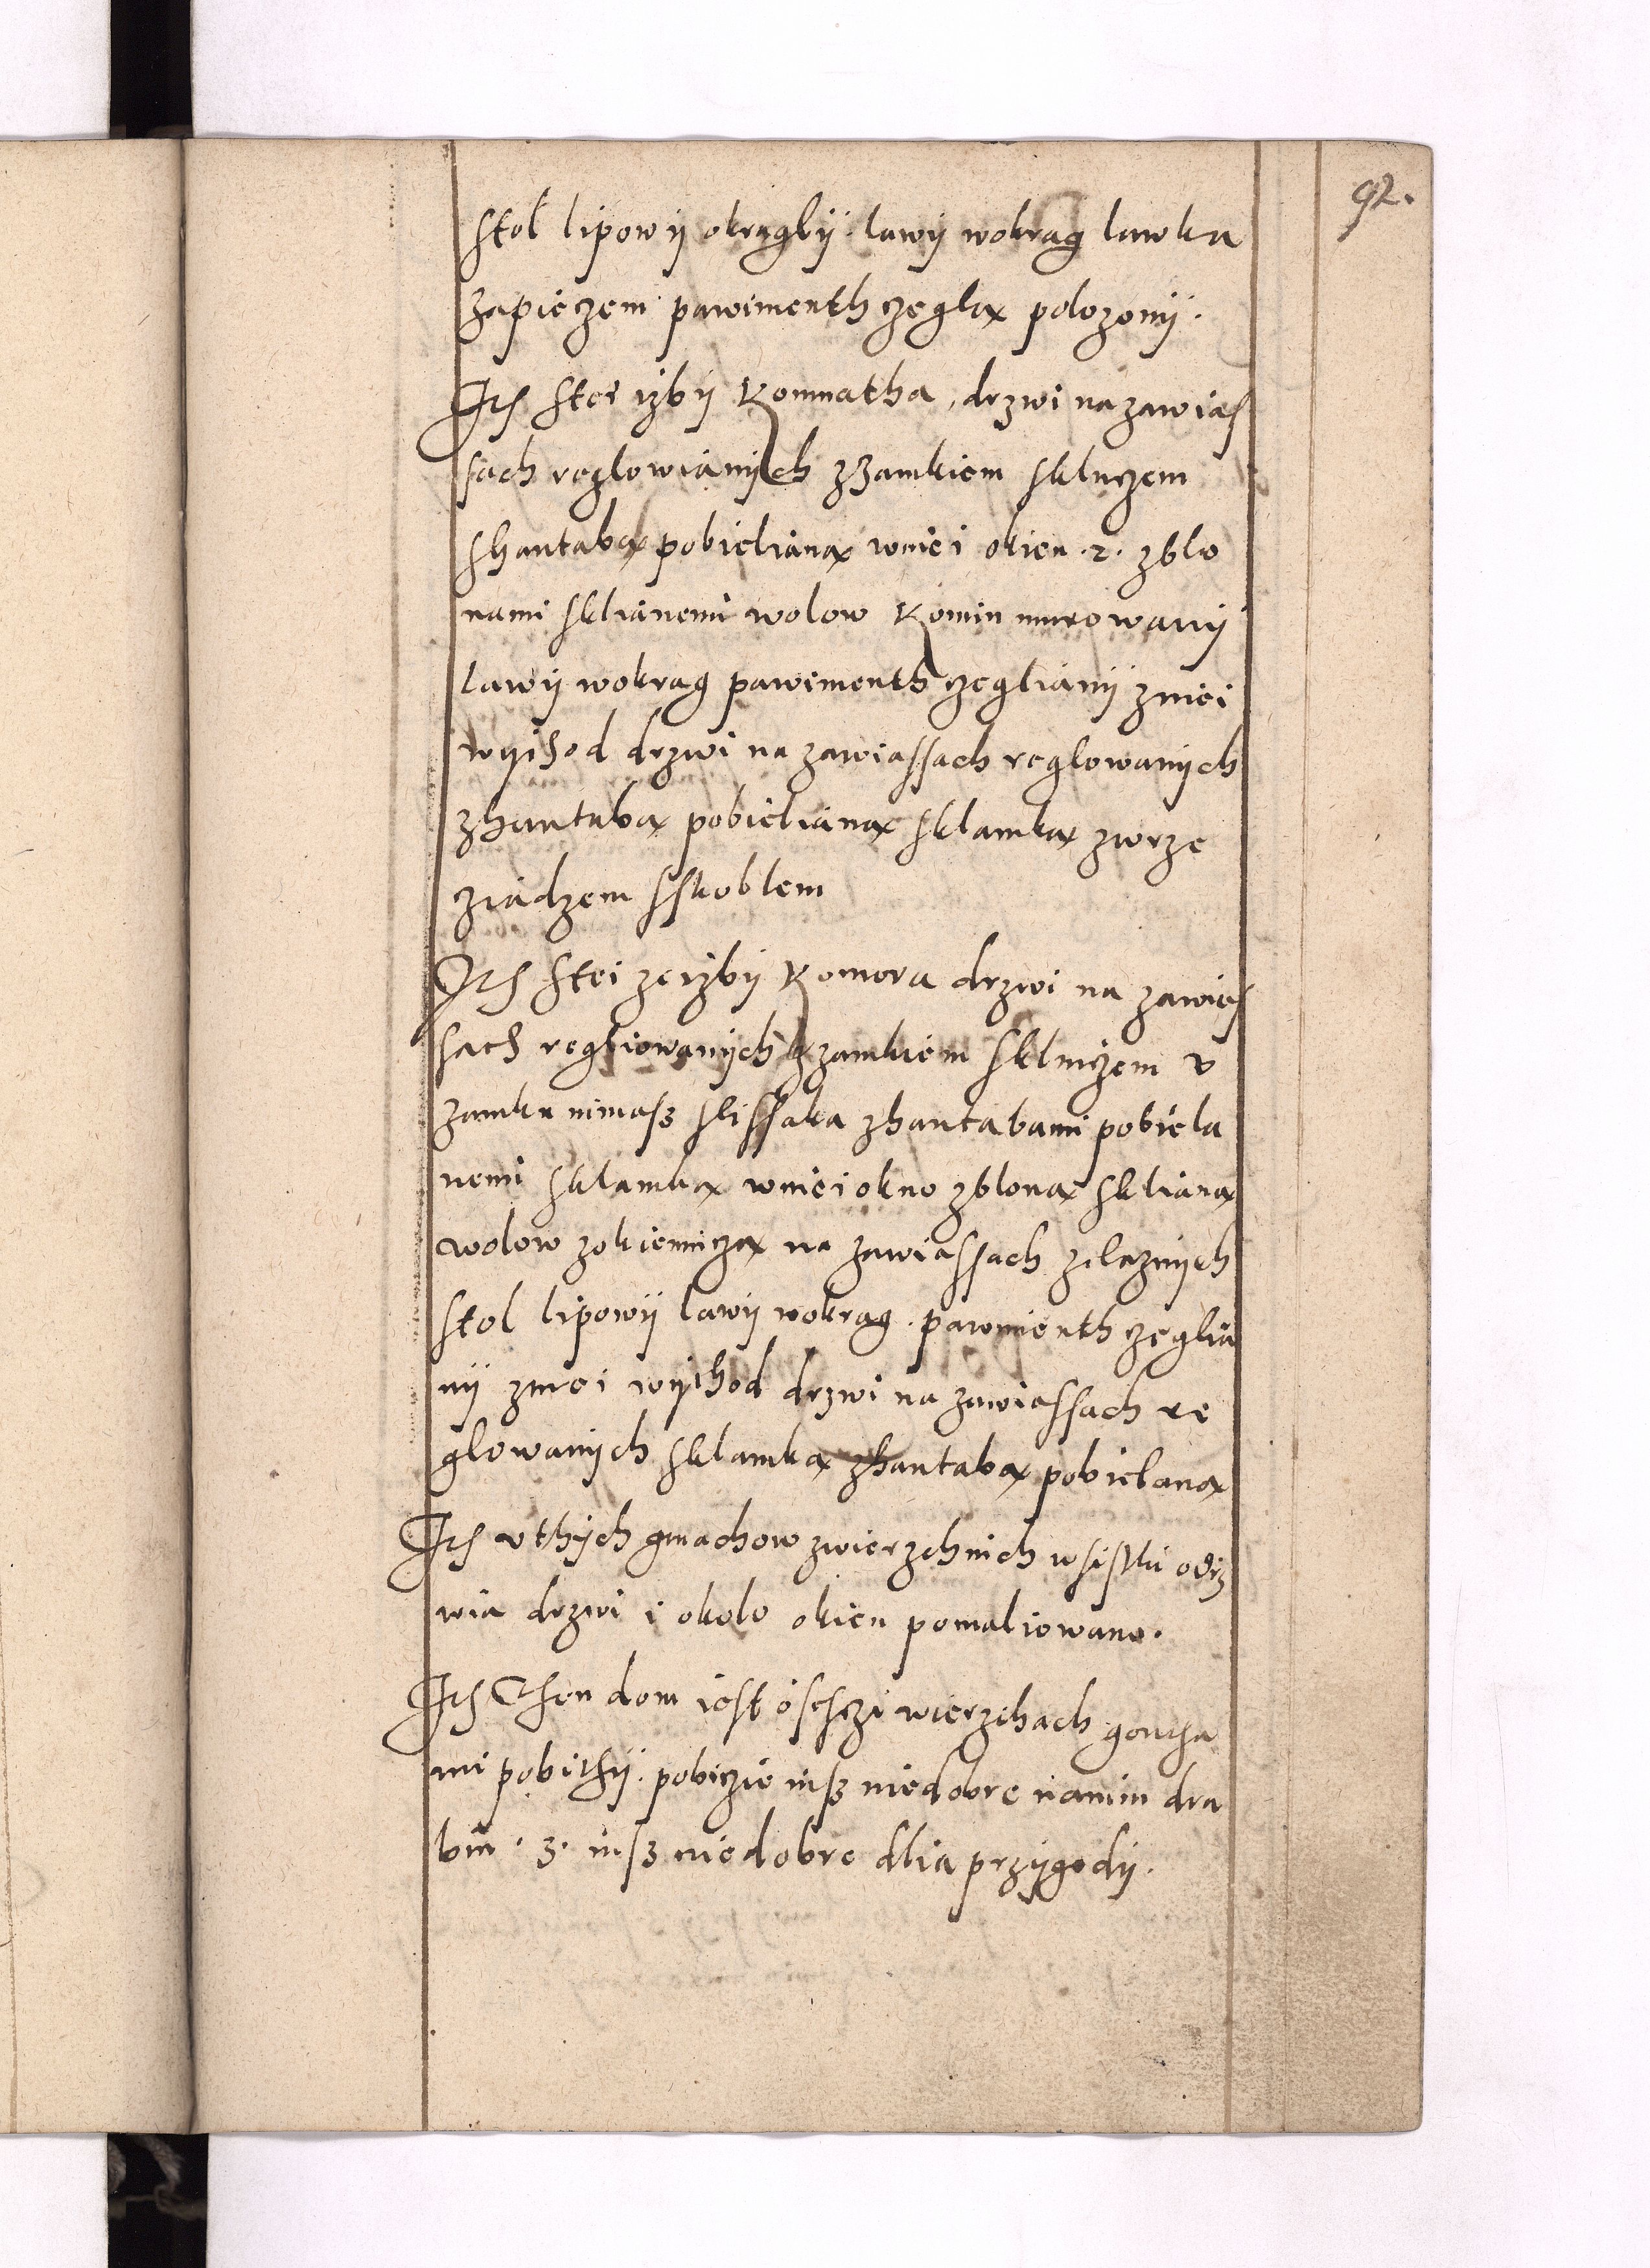 92.
stol lipowÿ okrąglÿ. lawÿ wokrag lawka
zapieczem pawimenth czegłą polozonÿ.
Its stei izbÿ Komnatha, drzwi na zawias
sach reglowianÿch zZamkiem skluczem
shantabą pobielianą wniei okien .2. zblo
nami sklianemi wolow Komin murowanÿ
lawÿ wokrag pawimenth czeglianÿ zniei
wÿihod drzwi na zawiassach reglowanÿch
zhantabą pobielianą sklamką zwrze
ziądzem sskoblem
Its stei ze izbÿ Komora drzwi na zawias
sach regliowanÿch zzamkiem skluczem v
zamku nimasz slissaka zhantabami pobiela
nemi sklamką wniei okno zbloną sklianą
wolow zokiennicza na zawiassach zelaznÿch
stol lipowÿ lawÿ wokrag. pawimenth czeglia
nÿ zniei wÿihod drzwi na zawiassach re
glowanÿch sklamką zhantabą pobielaną
Its vthÿch gmachow zwierzchnich wsistki odrz
wia drzwi i okolo okien pomaliowano.
Its Then dom iest osesczi wierzchach gontha
mi pobithÿ. pobiczie iusz niedobre nanim dra
bin .3. iusz niedobre dlia przÿgodÿ.